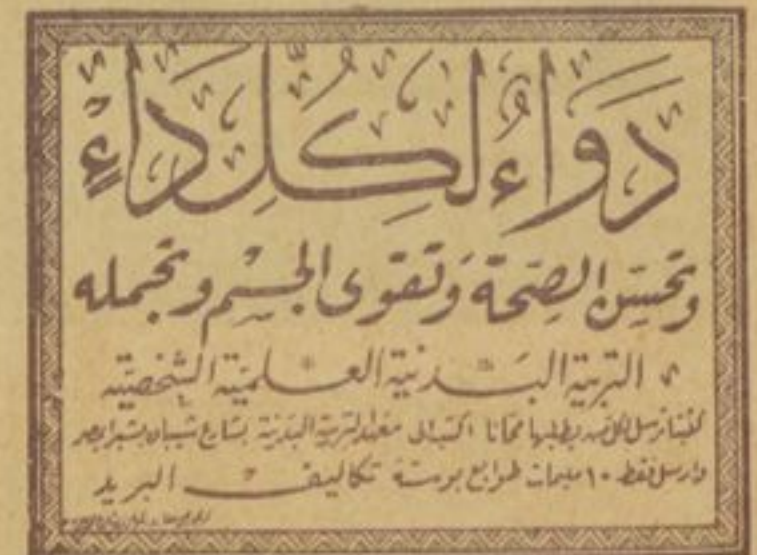 دَوَاءٌ لِكُلِّ دَاءٍ
وتحسّن الصِحّة وَتقوى الجسْم وتجمله
التربية البَدنية العلميّة الشخصيّة
كتبنا ترسل لكل من يطلبها مجانا اكتب الى معهد التربية البدنية بشارع شيبان بشبرا بمصر
وارسل فقط ١٠ مليمات طوابع بوستة تكاليف البريد